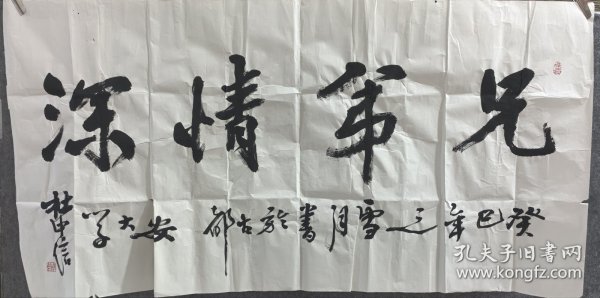 兄弟情深
癸巳年之雪月书於古都安大学
杜中信
孔夫子旧书网
www.kongfz.com